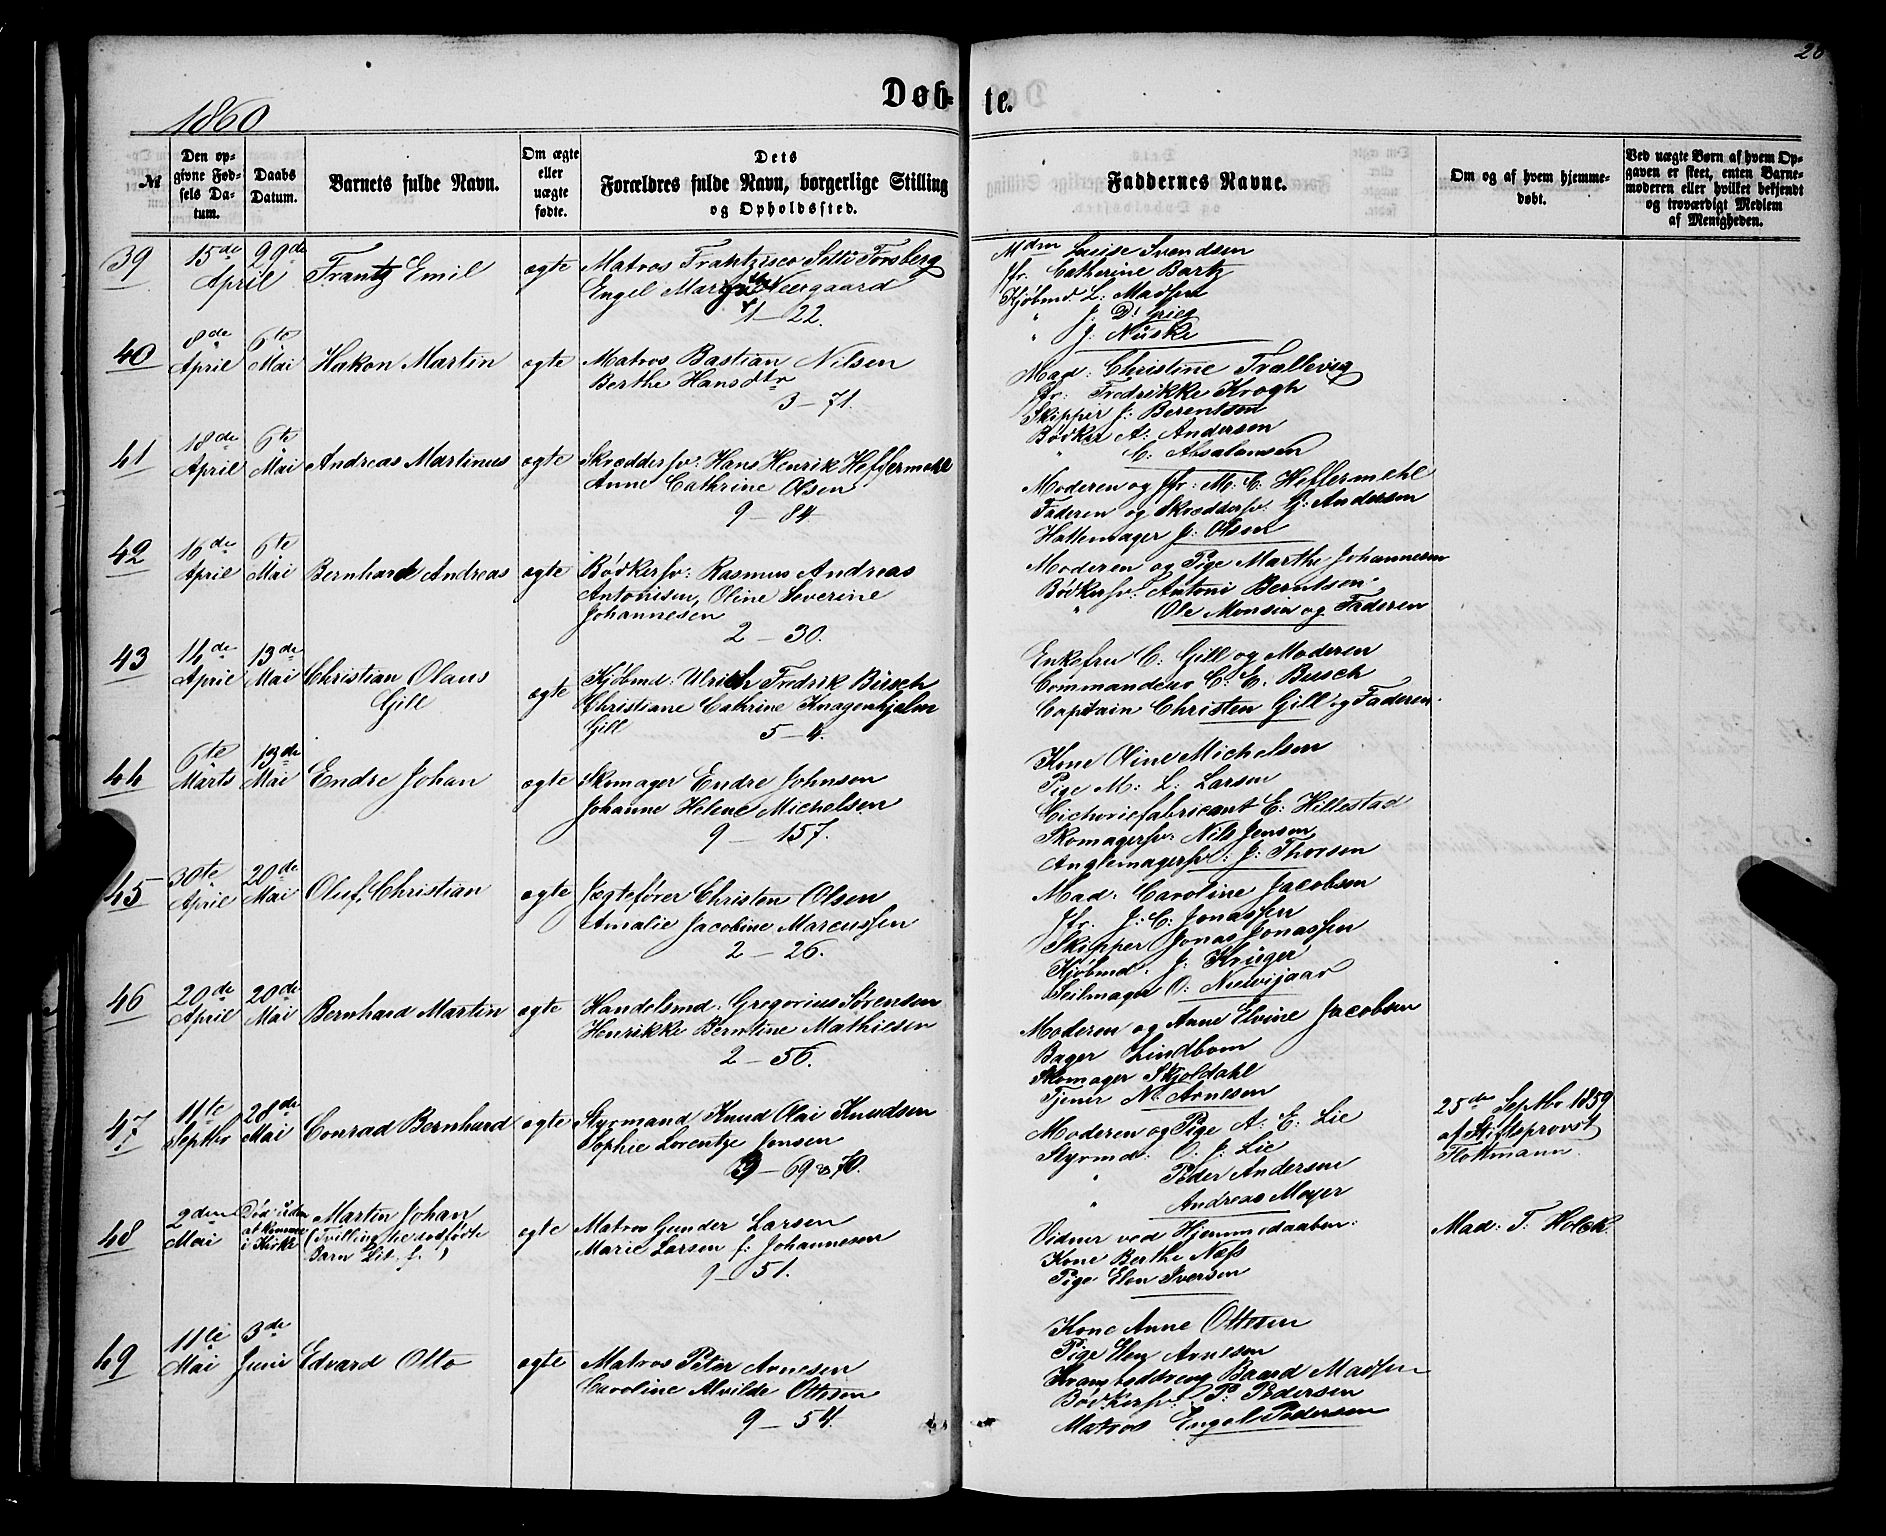 26
Døb-te.
1860
№
Den op-
givne Fød-
sels Da-
tum.
Daabs
Datum.
Barnets fulde Navn.
Om ægte
eller
uægte
fødte.
Dets
Forældres fulde Navn, borgerlige Stilling
og Opholdssted.
Faddernes Navne.
Om og af hvem hjemme-
døbt.
Ved uægte Børn af hvem Op-
gaven er skeet, enten Barne-
moderen eller hvilket bekjendt
og troværdigt Medlem
af Menigheden.
39
15de 29de
April
Frantz Emil
ægte
Matros Frantzisco Forsberg
Engel Neergaard
1 – 22.
Mdm Louise Svendsen
Jfr. Catherine Bartz
Kjøbmd. L. Madsen
" J. D. Grieg
" J. Nüske
40
8de
April
6te
Mai
Hakon Martin
ægte
Matros Bastian Nilsen
Berthe Hansdtr
3 – 71.
Mad: Christine Trællevig
Jfr: Fredrikke Krogh
Skipper J: Berentsen
Bødker A: Andersen
" C: Absalonsen
41
18de
April
6te
Mai
Andreas Martinus
ægte
Skræddersv: Hans Henrik Heffermehl
Anne Cathrine Olsen
9 – 84
Moderen og Jfr: M. C: Heffermehl
Faderen og Skræddersv. G: Andersen
Hattemager J: Olsen
42
16de
April
6te
Mai
Bernhard Andreas
ægte
Bødkersv: Rasmus Andreas
Antonisen, Oline Severine
Johannesen
2 – 30.
Moderen og Pige Marthe Johannesen
Bødkersv: Antoni Berntsen
" Ole Monsen og Faderen
43
14de
April
13de
Mai
Christian Olaus
Gill
ægte
Kjøbmd: Ulrich Fredrik Büsch
Christiane Cathrine Knagenhjelm
Gill
5 – 4.
Enkefru C: Gill og Moderen
Commandeur C: E. Büsch
Capitain Christen Gill og Faderen.
44
6te
Marts
13de
Mai
Endre Johan
ægte
Skomager Endre Johnsen
Johanne Helene Michelsen
9 – 157.
Kone Oline Michelsen
Pige M: L: Larsen
Cichoriefabricant E: Hillestad
Skomagersv: Nils Jensen
Anglemagersv: J: Thorsen
45
30te
April
20de
Mai
Oluf Christian
ægte
Jægtefører Christen Olsen
Amalie Jacobine Marcussen
2 – 26.
Mad: Caroline Jacobsen
Jfr. J: C: Jonassen
Skipper Jonas Jonassen
Kjøbmd: J: Krüger
Seilmager O:
46
20de
April
20de
Mai
Bernhard Martin
ægte
Handelsmd: Gregorius Sørensen
Henrikke Berntine Mathiesen
2 – 56.
Moderen og Anne Elvine Jacobsen
Bager Lindbom
Skomager Skjoldahl
Tjener N: Arnesen
47
11te
Septbr
28de
Mai
Conrad Bernhard
ægte
Styrmand Knud Olai Knudsen
Sophie Lorentze Jensen
3 – 69 & 70.
Moderen og Pige A: E: Lie
Styrmd: O: J: Lie
" Peder Andersen
" Andreas Meyer
25de Septbr 1859
af Stiftsprovst
Flottmann.
48
2den
Mai
Død uden
at komme
i Kirke
Martin Johan
(Tvilling se dødfødte
Børn Lit. f. )
ægte
Matros Gunder Larsen
Marie Larsen f: Johannesen
9 – 51.
Vidner ved Hjemmedaaben:
Kone Berthe Næss
Pige Elen Iversen
Mad: T: Holck.
49
11te
Mai
3de
Juni
Edvard Otto
ægte
Matros Peter Arnesen
Caroline Alvilde Ottesen
9 – 54.
Kone Anne Ottesen
Pige Elen Arnesen
Baard Madsen
Bødkersv: P: Pedersen
Matros Engel Pedersen